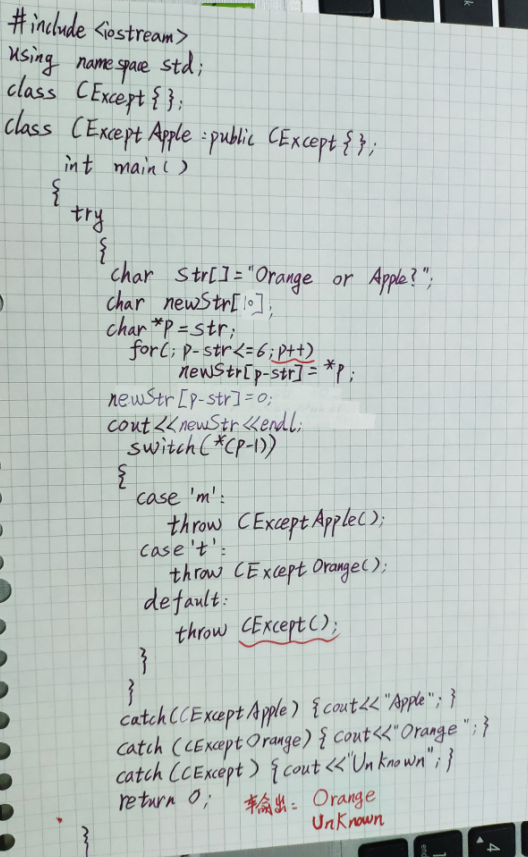 #include <iostream>
using namespace std;
class CExcept{};
class CExceptApple:public CExcept{};
int main()
{
try
{
char str[]="Orange or Apple?";
char newStr[10];
char *p=str;
for(; p-str<=6; p++)
newStr[p-str]=*p;
newStr[p-str]=0;
cout<<newStr<<endl;
switch(*(p-1))
{
case 'm':
throw CExceptApple();
case 't':
throw CExceptOrange();
default:
throw CExcept();
}
}
catch(CExceptApple) {cout<<"Apple"; }
catch (CExceptOrange) { cout<<"Orange"; }
catch (CExcept) {cout<<"UnKnown"; }
return 0; 输出: Orange
UnKnown
}
4